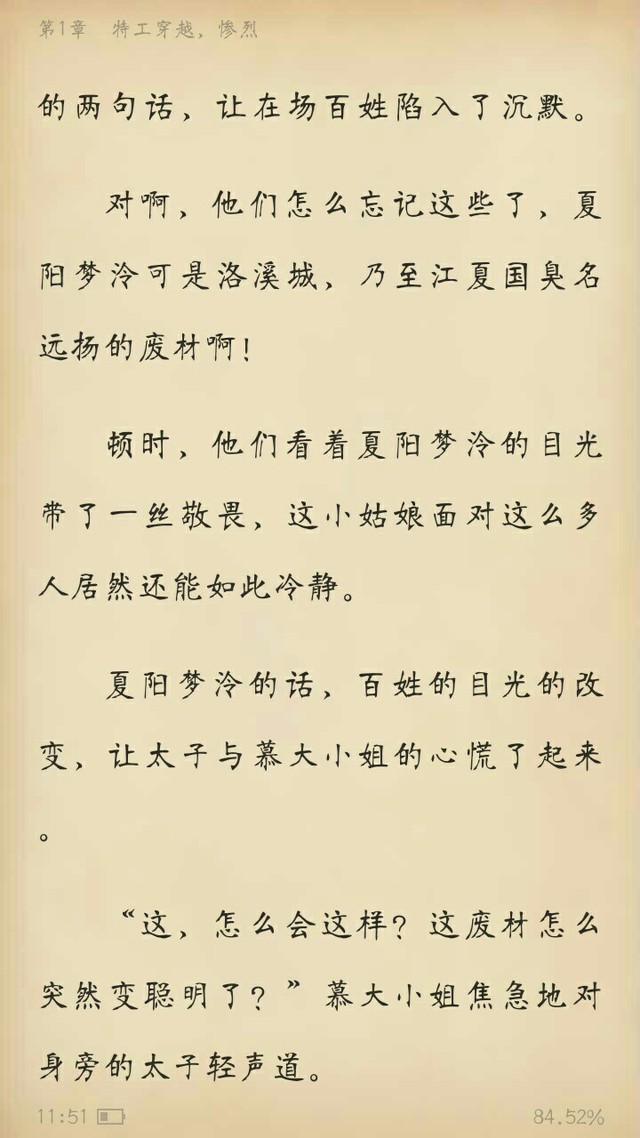 第1章 特工穿越，惨烈
的两句话，让在场百姓陷入了沉默。
对啊，他们怎么忘记这些了，夏
阳梦泠可是洛溪城，乃至江夏国臭名
远扬的废材啊！
顿时，他们看着夏阳梦泠的目光
带了一丝敬畏，这小姑娘面对这么多
人居然还能如此冷静。
夏阳梦泠的话，百姓的目光的改
变，让太子与慕大小姐的心慌了起来
。
“这，怎么会这样？这废材怎么
突然变聪明了？”慕大小姐焦急地对
身旁的太子轻声道。
11:51
84.52%